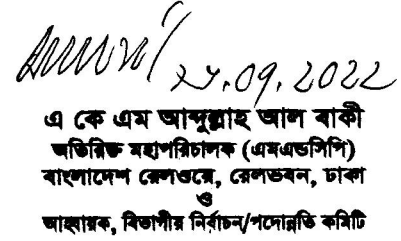 ২৮.০৭.২০২২
এ কে এম আব্দুল্লাহ আল বাকী
অতিরিক্ত মহাপরিচালক (এমএন্ডসিপি)
বাংলাদেশ রেলওয়ে, রেলভবন, ঢাকা
ও
আহবায়ক, বিভাগীয় নির্বাচন/পদোন্নতি কমিটি